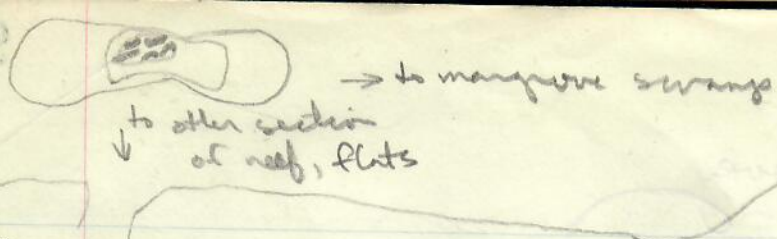 → to mangrove swamp
to other section
↓ of reef, flats